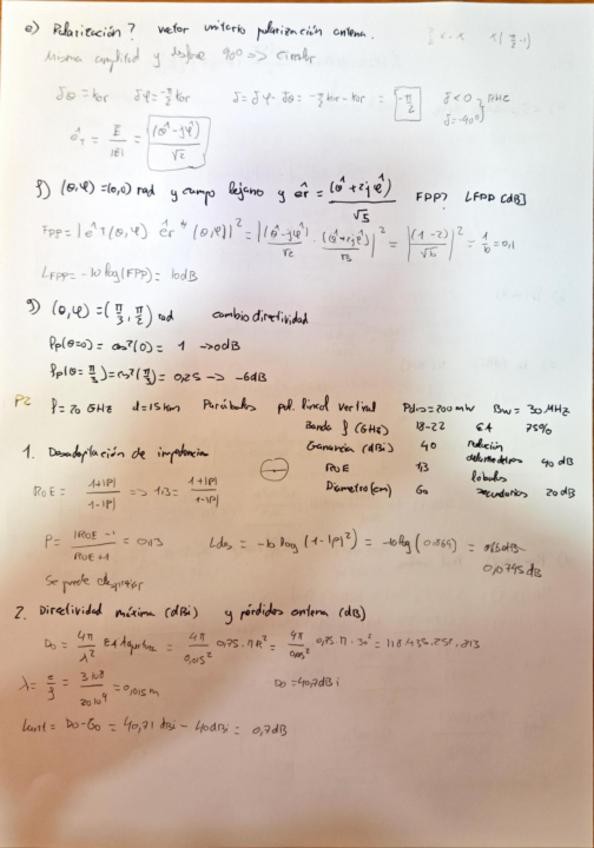 e) Polarización? vector unitario polarización antena.
Misma amplitud y desfase 90º => Circular
δθ = kor δφ = -π/2 kor δ = δφ - δθ = -π/2 kor - kor = -π/2 δ < 0
ê_T = E/|E| = (θ̂ - jφ̂)/√2
f) (θ,φ) = (0,0) rad y campo lejano y êr = (θ̂ + 2jφ̂)/√5 FPP? LFPP [dB]
FPP = |êT(θ,φ) êr*(θ,φ)|² = |(θ̂ - jφ̂)/√2 · (θ̂ + 2jφ̂)/√5|² = |(1-2)/√10|² = 1/10 = 0,1
LFPP = -10 log(FPP) = 10dB
g) (θ,φ) = (π/3, π/2) rad cambio directividad
Pp(θ=0) = cos²(0) = 1 -> 0dB
Pp(θ=π/3) = cos²(π/3) = 0,25 -> -6dB
P2 f = 20 GHz d = 15 km Parábolas pol. lineal vertical Pdis = 200 mW Bw = 30 MHz
Banda f (GHz) 18-22 EA 75%
Ganancia (dBi) 40 relación delante detrás 40 dB
ROE 1,3 lóbulos secundarios 20 dB
Diametro (cm) 60
1. Desadaptación de impedancia
ROE = 1+|ρ| / 1-|ρ| => 1,3 = 1+|ρ| / 1-|ρ|
ρ = |ROE - 1| / ROE + 1 = 0,13 Ldes = -10 log (1-|ρ|²) = -10 log( ) =
0,0745 dB
Se puede despreciar
2. Directividad máxima (dBi) y pérdidas antena (dB)
D0 = 4π/λ² EA Apertura = 4π/0,015² 0,75 · π R² = 4π/0,015² 0,75 · π · 30² = 118.435.251,213
λ = c/f = 3·10⁸/20·10⁹ = 0,015 m D0 = 40,7 dBi
Lant = D0 - G0 = 40,71 dBi - 40 dBi = 0,7 dB